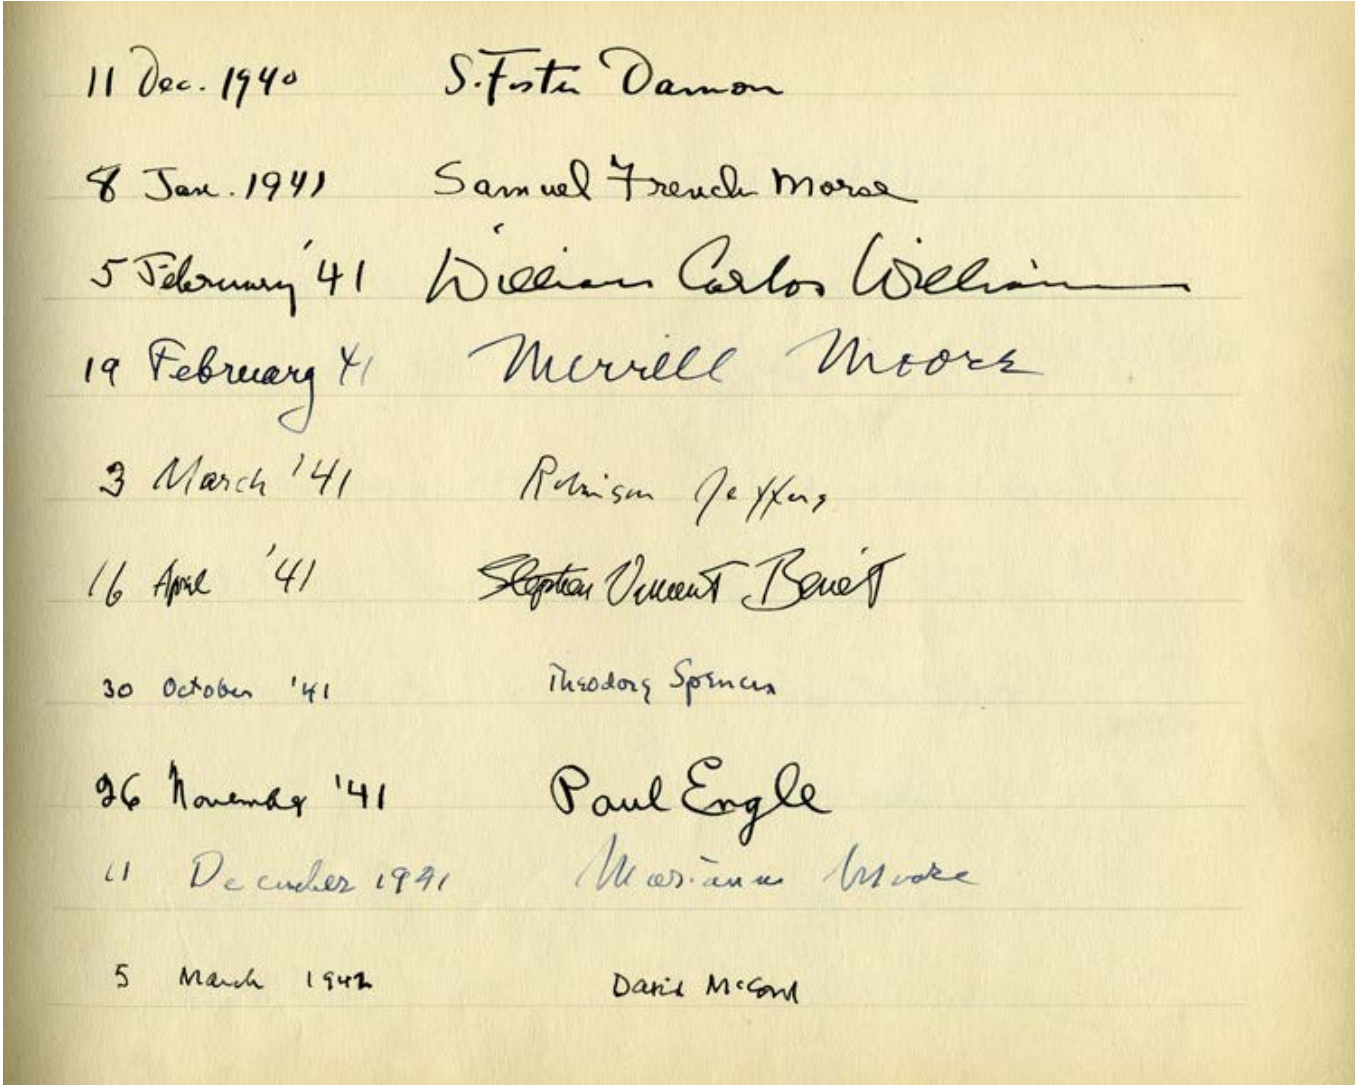 11 Dec. 1940 S. Foster Damon
8 Jan. 1941 Samuel French Morse
5 February '41 William Carlos Williams
19 February 41 Merrill Moore
3 March '41 Robinson Jeffers
16 April '41 Stephen Vincent Benét
30 October '41 Theodore Spencer
26 November '41 Paul Engle
11 December 1941 Marianne Moore
5 March 1942 David McCord